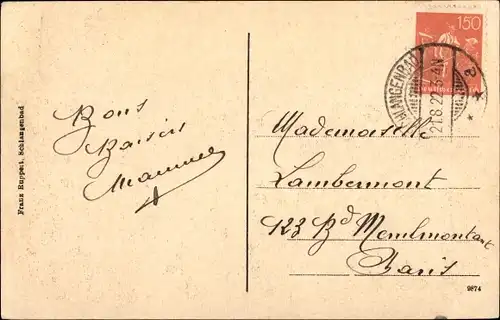 Franz Ruppert, Schlangenbad
Bons
Baisers
Maman
150
SCHLANGENBAD
21.8.22
Mademoiselle
Lambermont
123 Bd Menilmontant
Paris
9874